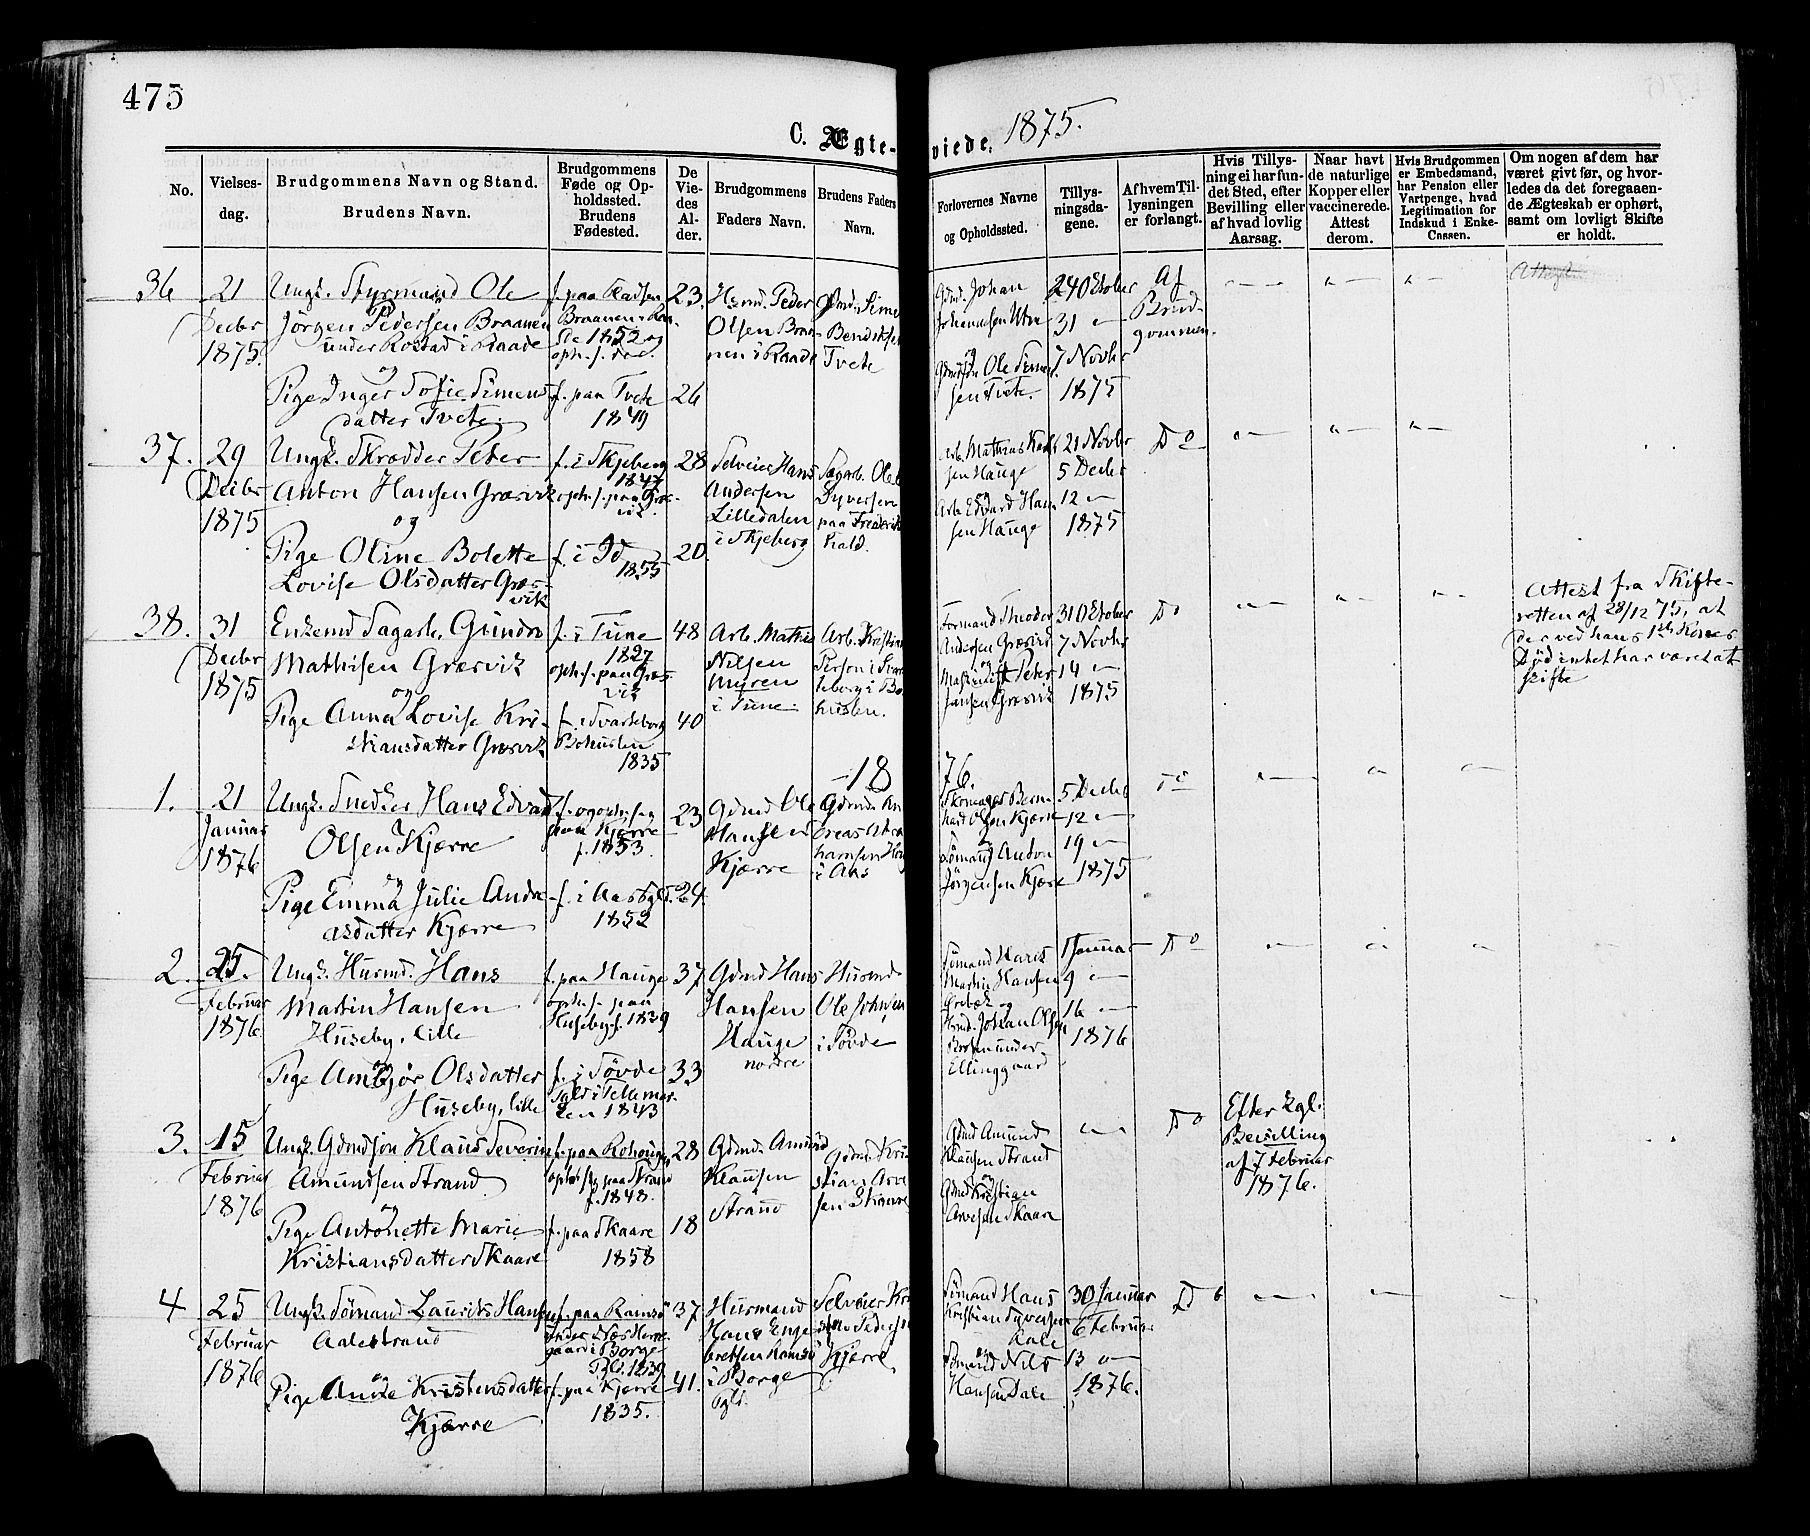 475
C. Ægte-viede, 1875.
No.
Vielses-dag.
Brudgommens Navn og Stand.
Brudens Navn.
Brudgommens Føde og Opholdssted. Brudens Fødested.
De Viedes Alder.
Brudgommens Faders Navn.
Brudens Faders Navn.
Forlovernes Navne og Opholdssted.
Tillysningsdagene.
Af hvem Tillysningen er forlangt.
Hvis Tillysning ei har fundet Sted, efter Bevilling eller af hvad lovlig Aarsag.
Naar havt de naturlige Kopper eller vaccinerede. Attest derom.
Hvis Brudgommen er Embedsmand, har Pension eller Vartpenge, hvad Legitimation for Indskud i Enke-Cassen.
Om nogen af dem har været givt før, og hvorledes da det foregaaende Ægteskab er ophørt, samt om lovligt Skifte er holdt.
36
21
Decbr
1875.
Ungk. Styrmand Ole
Jörgen Pedersen Braanen
under Rostad i Raade
og
Pige Inger Sofie Simens
datter Tvete.
f. paa
Braanen i Raa-
de 1852 og
oph. s. sted.
f. paa Tvete
1849
23.
26
Husmd. Peder
Olsen Braa-
nen i Raade
Gdmd. Sime
Bendiksen
Tvete
Gdmd. Johan
Johannesen
og
Gdmdsön Ole Simen
sen Tvete.
24 Oktober
31 "
7 Novbr
1875
Af
Brud-
gommen.
37.
29
Decbr
1875
Ungk. Skrædder Peter
Anton Hansen Græsvik
og
Pige Oline Bolette
Lovise Olsdatter Græs-
vik
f. i Skjeberg
1847
oph. s. paa Græs-
vik.
f. i Id
1855
28
20.
Selveier Hans
Andersen
Lilledalen
i Skjeberg
Sagarb. Ole
Syversen
paa Frederik
hald.
Arb. Mathias
sen Hauge
og
Arb. Edvard Han
sen Hauge
21 Novbr
5 Decbr
12 "
1875
Do
38.
31
Decbr
1875
Enkemd Sagarb. Gunder
Mathisen Græsvik
og
Pige Anna Lovise Kri-
stiansdatter Græsvik
f. i Tune
1827
oph. s. paa Græs-
vik
f. i Svarteborg
Bohuslen
1835
48
40
Arb. Mathis
Nilsen
Myren
i Tune.
Arb. Kristian
Person i Svar
teborg i Bo
huslen.
Formand Theodor
Andersen Græsvik
og
Maskinist Peter
Jansen Græsvik
31 Oktober
7 Novbr
14 "
1875
Do
Attest fra Skifte-
retten af 28/12 75, at
der ved hans 1ste Kones
Död intet har været at
skifte
-18 76.
1.
21
Januar
1876
Ungk. Snedker Hans Edvard
Olsen Kjærre
og
Pige Emma Julie Andre
asdatter Kjærre
f. og oph. sig
paa Kjærre
f. 1853.
f. i Aas Pgld.
1852
23
24.
Gdmd Ole
Hansen
Kjærre
Gdmd. An
dreas Abra
hamsen
i Aas
Skomager Bern-
hard Olsen Kjærre
og
Sömand Anton
Jörgensen Kjærre
5 Decbr
12 "
19 "
1875
Do
2.
25.
Februar
1876
Ungk. Husmd. Hans
Martin Hansen
Huseby, lille
og
Pige Ambjör Olsdatter
Huseby, lille
f. paa Hauge
oph. s. paa
Huseby f. 1839
f. i Sövde
Pgld i Tellemar
ken 1843
37
33
Gdmd Hans
Hansen
Hauge
nordre
Husmd
Ole Johnsen
i Sövde
Sömand
Martin Hansen
og
Husmd. Johan Olsen
under
Ellinggaard
1 Januar
9 "
16 "
1876
Do
3.
15
Februar
1876
Ungk. Gdmdsön Klaus Severin
Amundsen Strand
og
Pige Antonette Marie
Kristiansdatter Skaare
f. paa
opholder sig paa Strand
f. 1848.
f. paa Skaare
1858
28
18
Gdmd. Amund
Klausen
Strand
Gdmd. Kri
stian Arve
sen Skaare
Gdmd Amund
Klausen Strand
og
Gdmd Kristian
Arvesen Skaare
Do
Efter kgl.
Bevilling
af 7 Februar
1876.
4
25
Februar
1876
Ungk. Sömand Laurits Hansen
Aalestrand
og
Pige Anne Kristensdatter
Kjærre
f. paa Ramsö
under Næs Herre-
gaard i Borge
Pgld. 1839
f. paa Kjærre
1835.
37
41.
Husmand
Hans Enge
bretsen Ramsö
i Borge
Pgld.
Selveier Kri
sten Pedersen
Kjærre
Sömand Hans
Kristian Syversen
Dale
og
Sömand Nils
Hansen Dale
30 Januar
6 Februar
13 "
1876.
Do